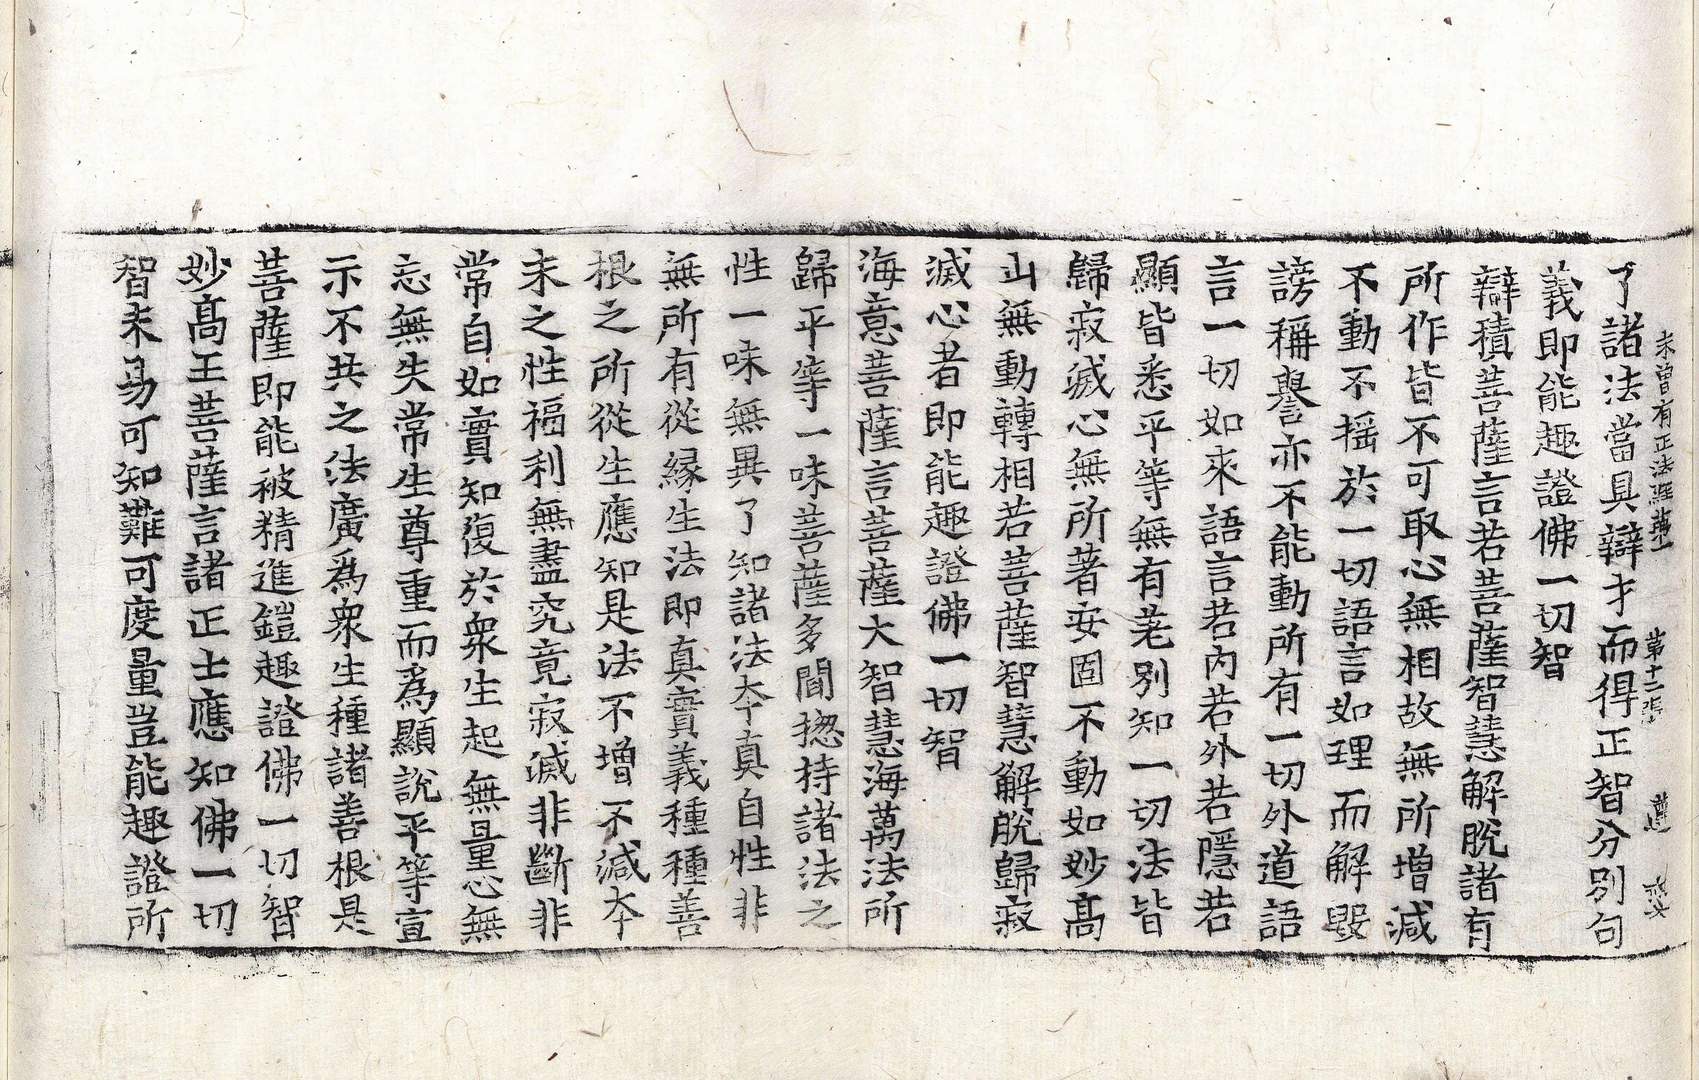 未曾有正法經第一 第十二張 遵
了諸法當具辯才而得正智分別句
義即能趣證佛一切智
辯積菩薩言若菩薩智慧解脫諸有
所作皆不可取心無相故無所增減
不動不揺於一切語言如理而解毀
謗稱譽亦不能動所有一切外道語
言一切如來語言若內若外若隱若
顯皆悉平等無有差別知一切法皆
歸寂滅心無所著安固不動如妙高
山無動轉相若菩薩智慧解脫歸寂
滅心者即能趣證佛一切智
海意菩薩言菩薩大智慧海萬法所
歸平等一味菩薩多聞揔持諸法之
性一味無異了知諸法本真自性非
無所有從緣生法即真實義種種善
根之所從生應知是法不增不減本
末之性福利無盡究竟寂滅非斷非
常自如實知復於衆生起無量心無
忘無失常生尊重而爲顯說平等宣
示不共之法廣爲衆生種諸善根是
菩薩即能被精進鎧趣證佛一切智
妙高王菩薩言諸正士應知佛一切
智未易可知難可度量豈能趣證所